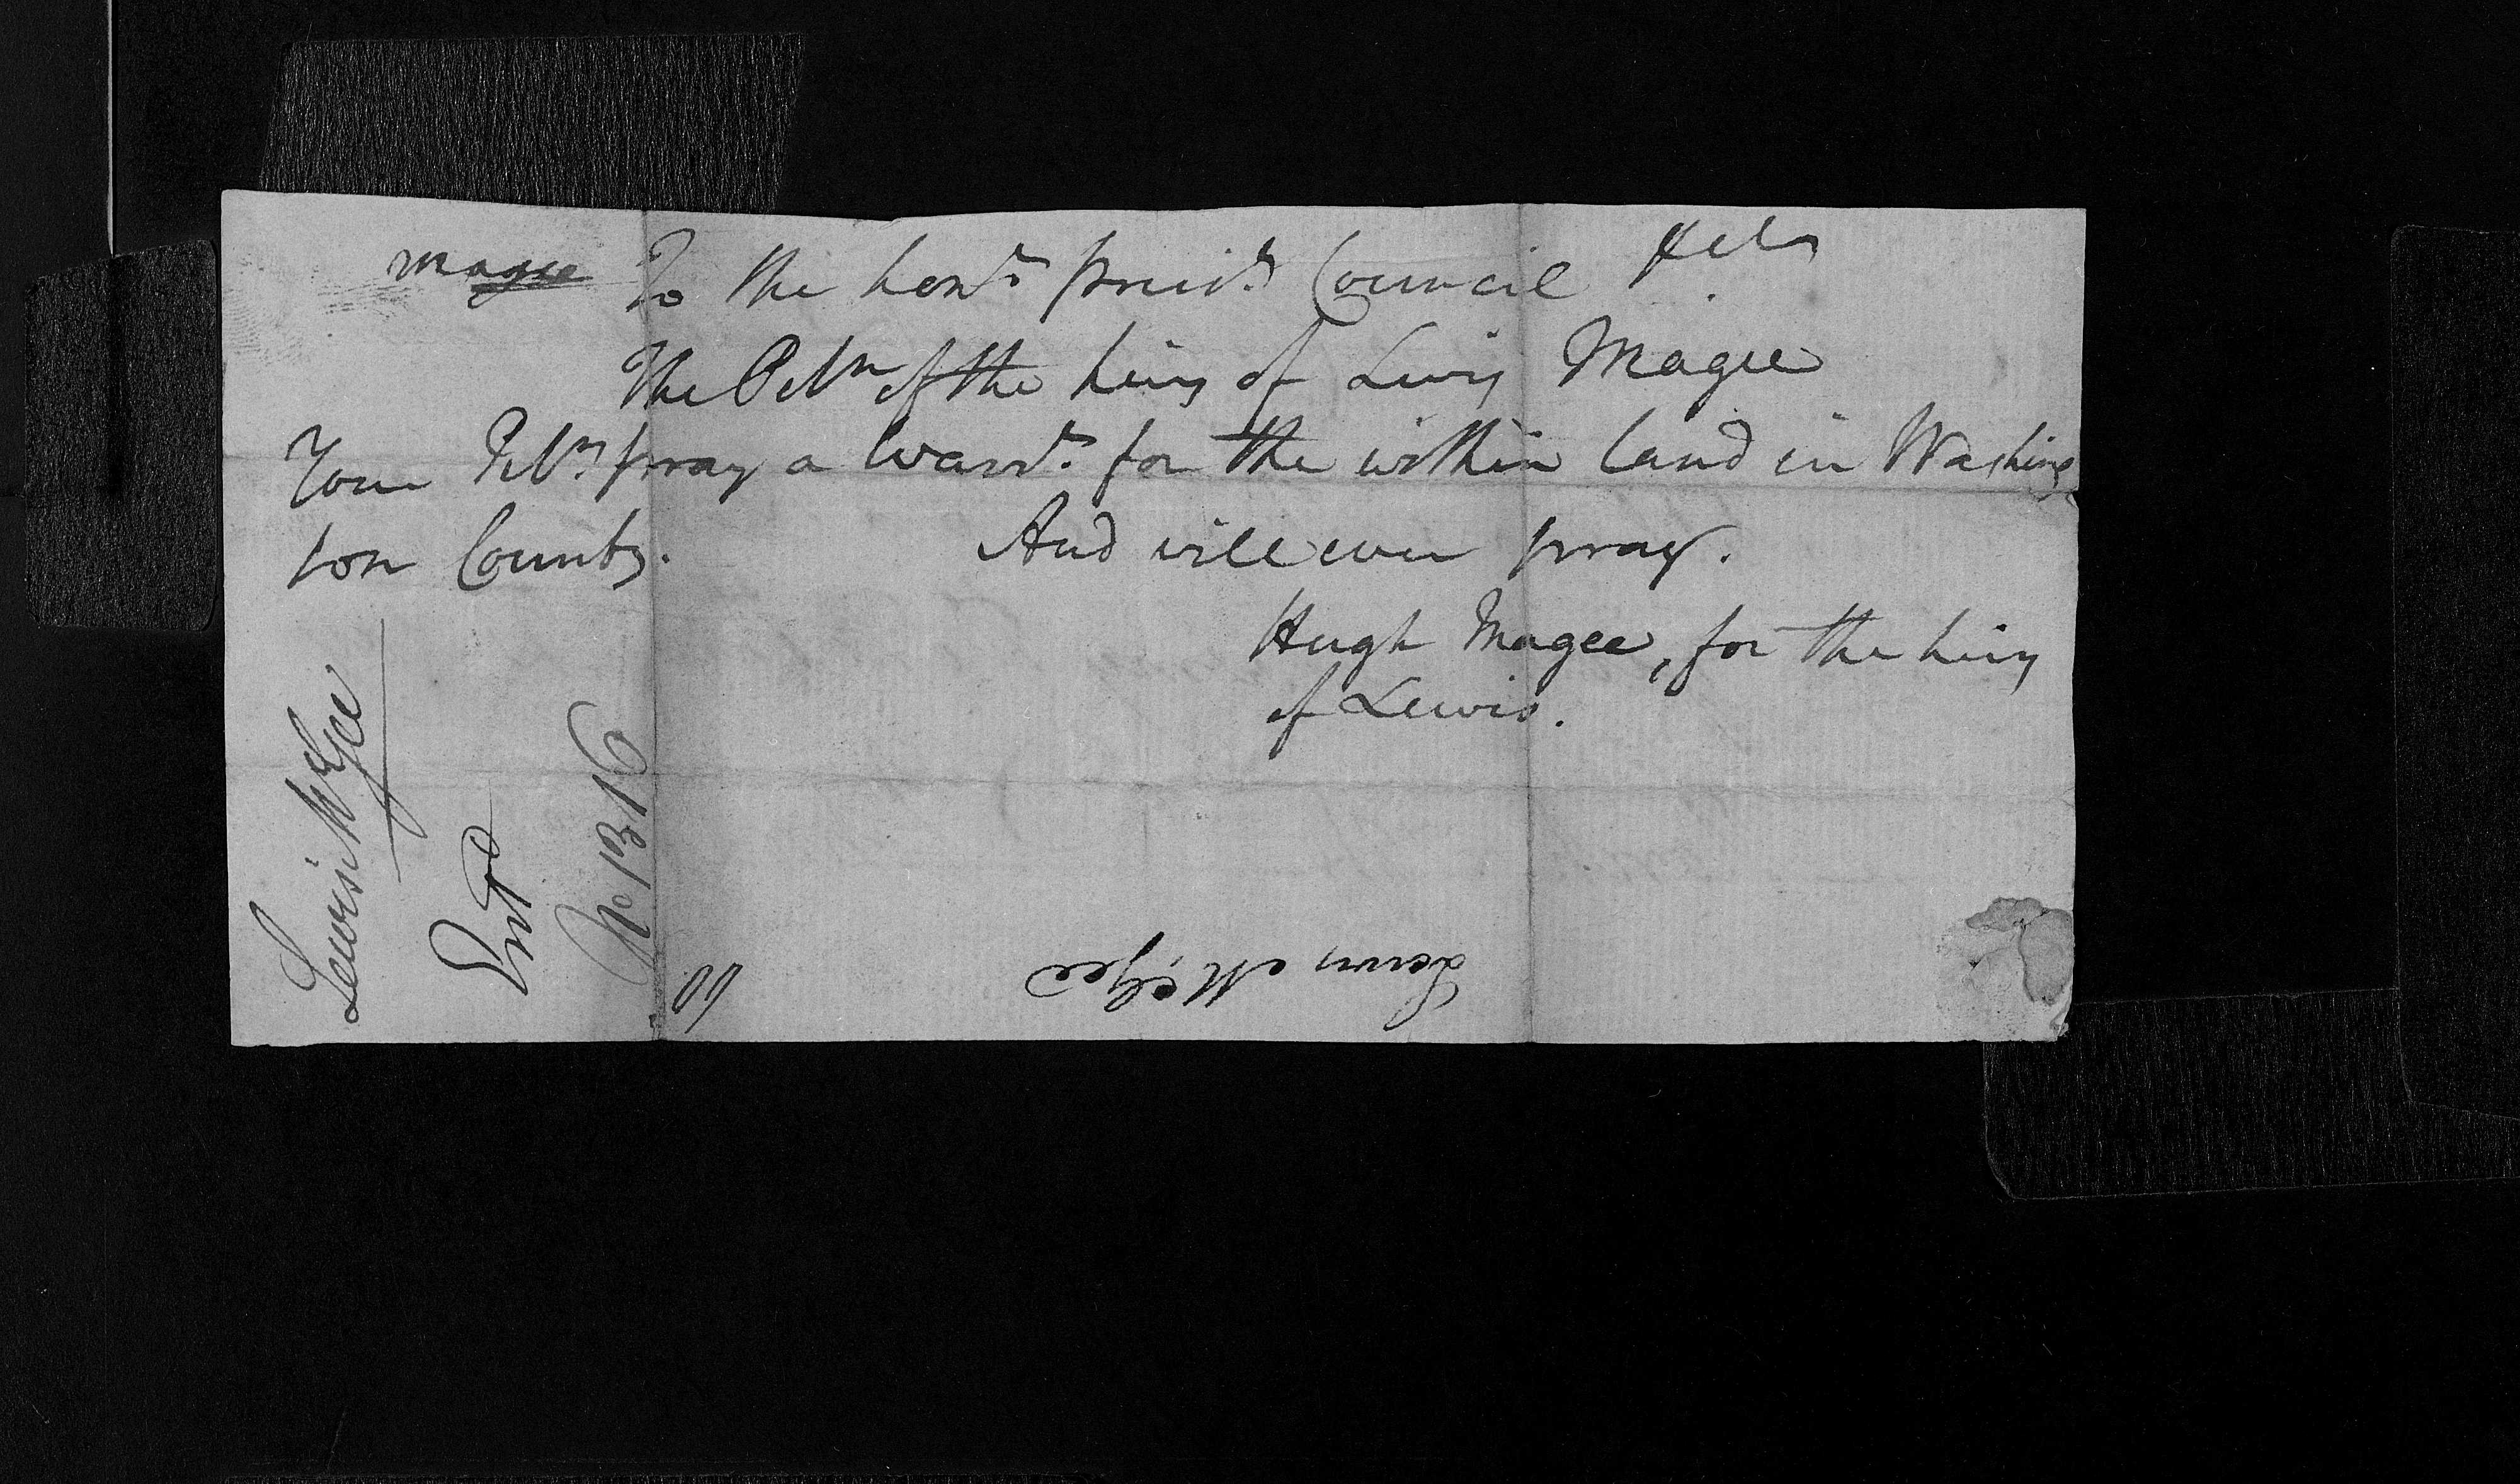 Magee
To the honl. presid. Council &c
The Petn of the heirs of Lewis Magee
Your Petr. pray a warrt. for the within land in Washing
ton County. And will ever pray.
Hugh Magee, for the heirs
of Lewis.
Lewis McGee
Entd
No 1316
Lewis McGee